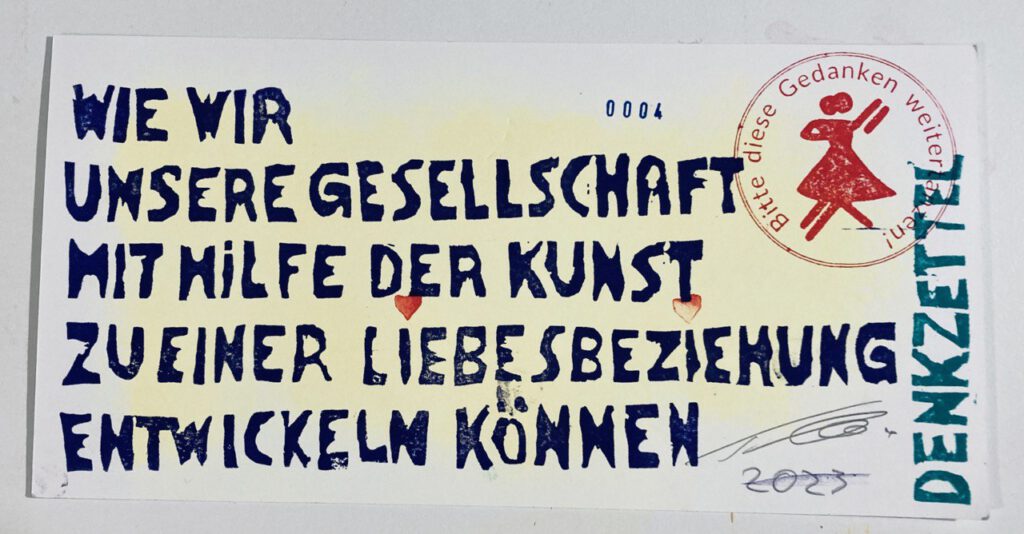 WIE WIR
0004
UNSERE GESELLSCHAFT
MIT HiLFE DER KUNST
ZU EINER LIEBESBEZIEHUNG
ENTWICKELN KÖNNEN
Bitte diese Gedanken weitertanzen!
DENKZETTEL
2023